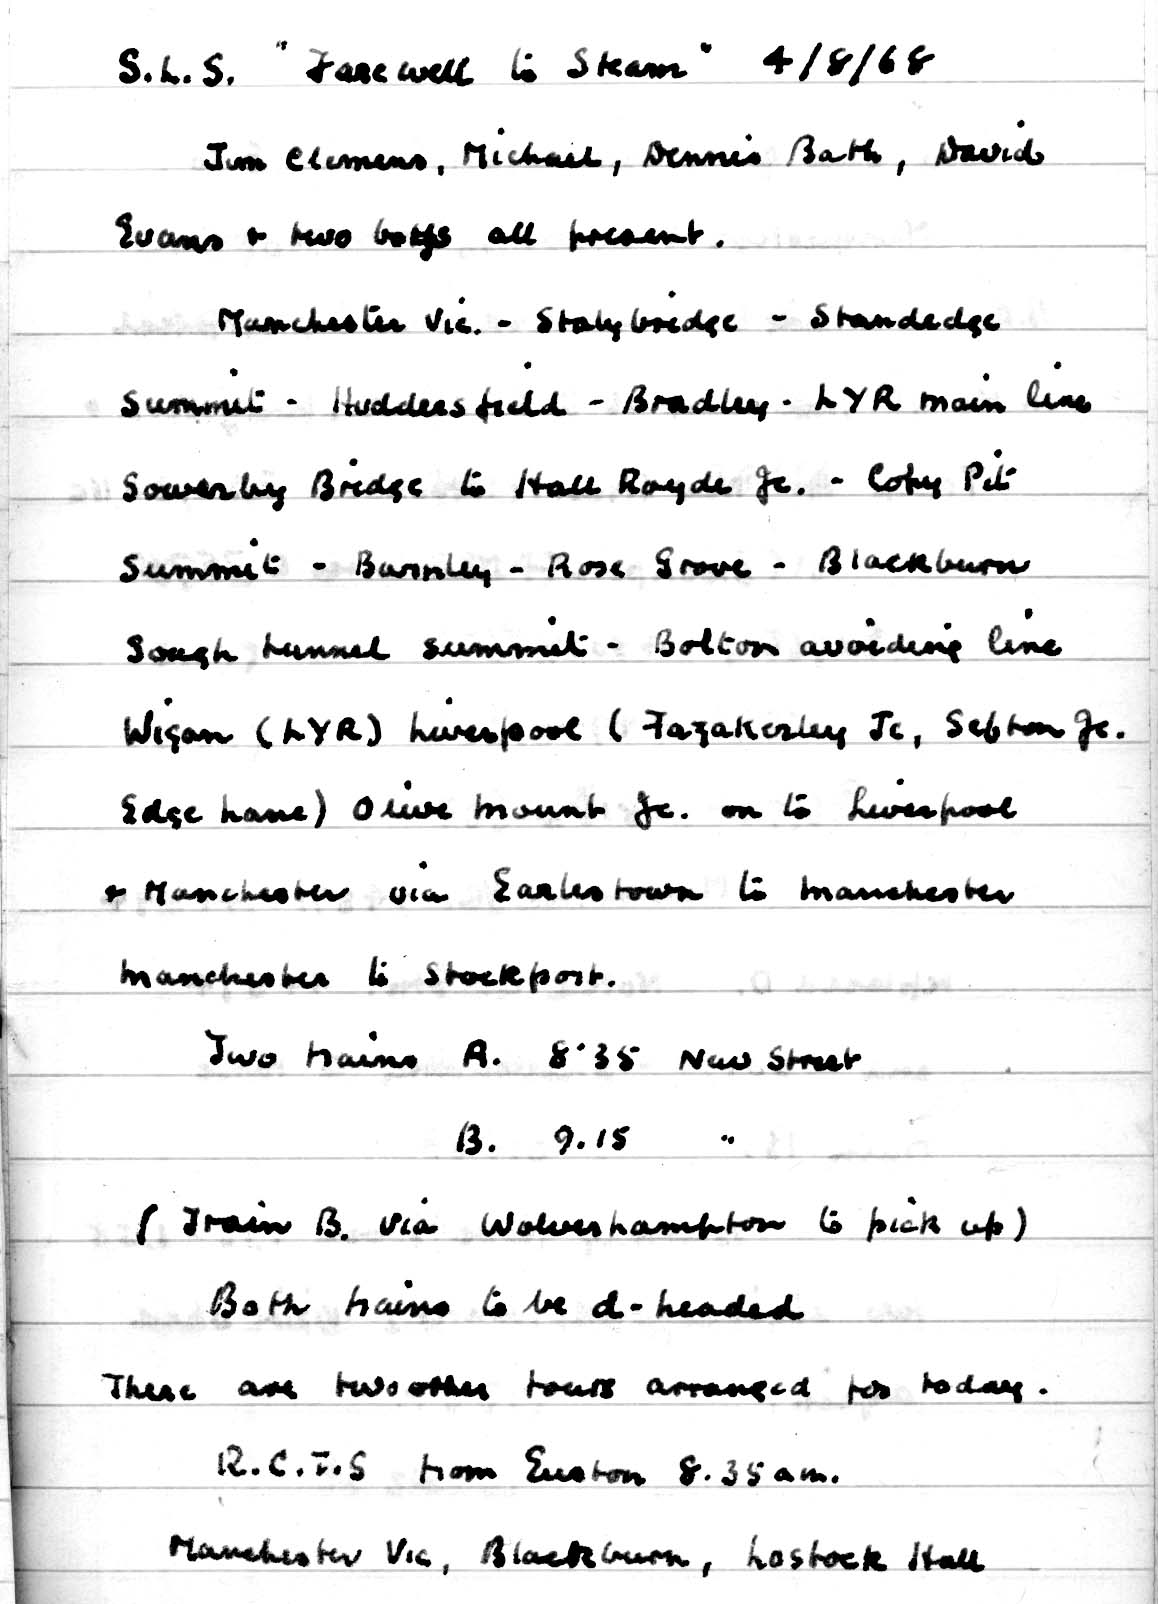 S.L.S. "Farewell to Steam" 4/8/68
Jim Clemens, Michael, Dennis Bath, David
Evans + two boys all present.
Manchester Vic. - Stalybridge - Standedge
Summit - Huddersfield - Bradley - LYR main line
Sowerby Bridge to Hall Royde Jc. - Copy Pit
Summit - Burnley - Rose Grove - Blackburn
Sough tunnel summit - Bolton avoiding line
Wigan (LYR) Liverpool (Fazakerley Jc, Sefton Jc.
Edge Lane) Olive Mount Jc. on to Liverpool
+ Manchester via Earlestown to Manchester
Manchester to Stockport.
Two trains A. 8.35 New Street
B. 9.15 "
(Train B. via Wolverhampton to pick up)
Both trains to be d-headed
There are two other tours arranged for today.
R.C.T.S from Euston 8.35 am.
Manchester Vic, Blackburn, Lostock Hall